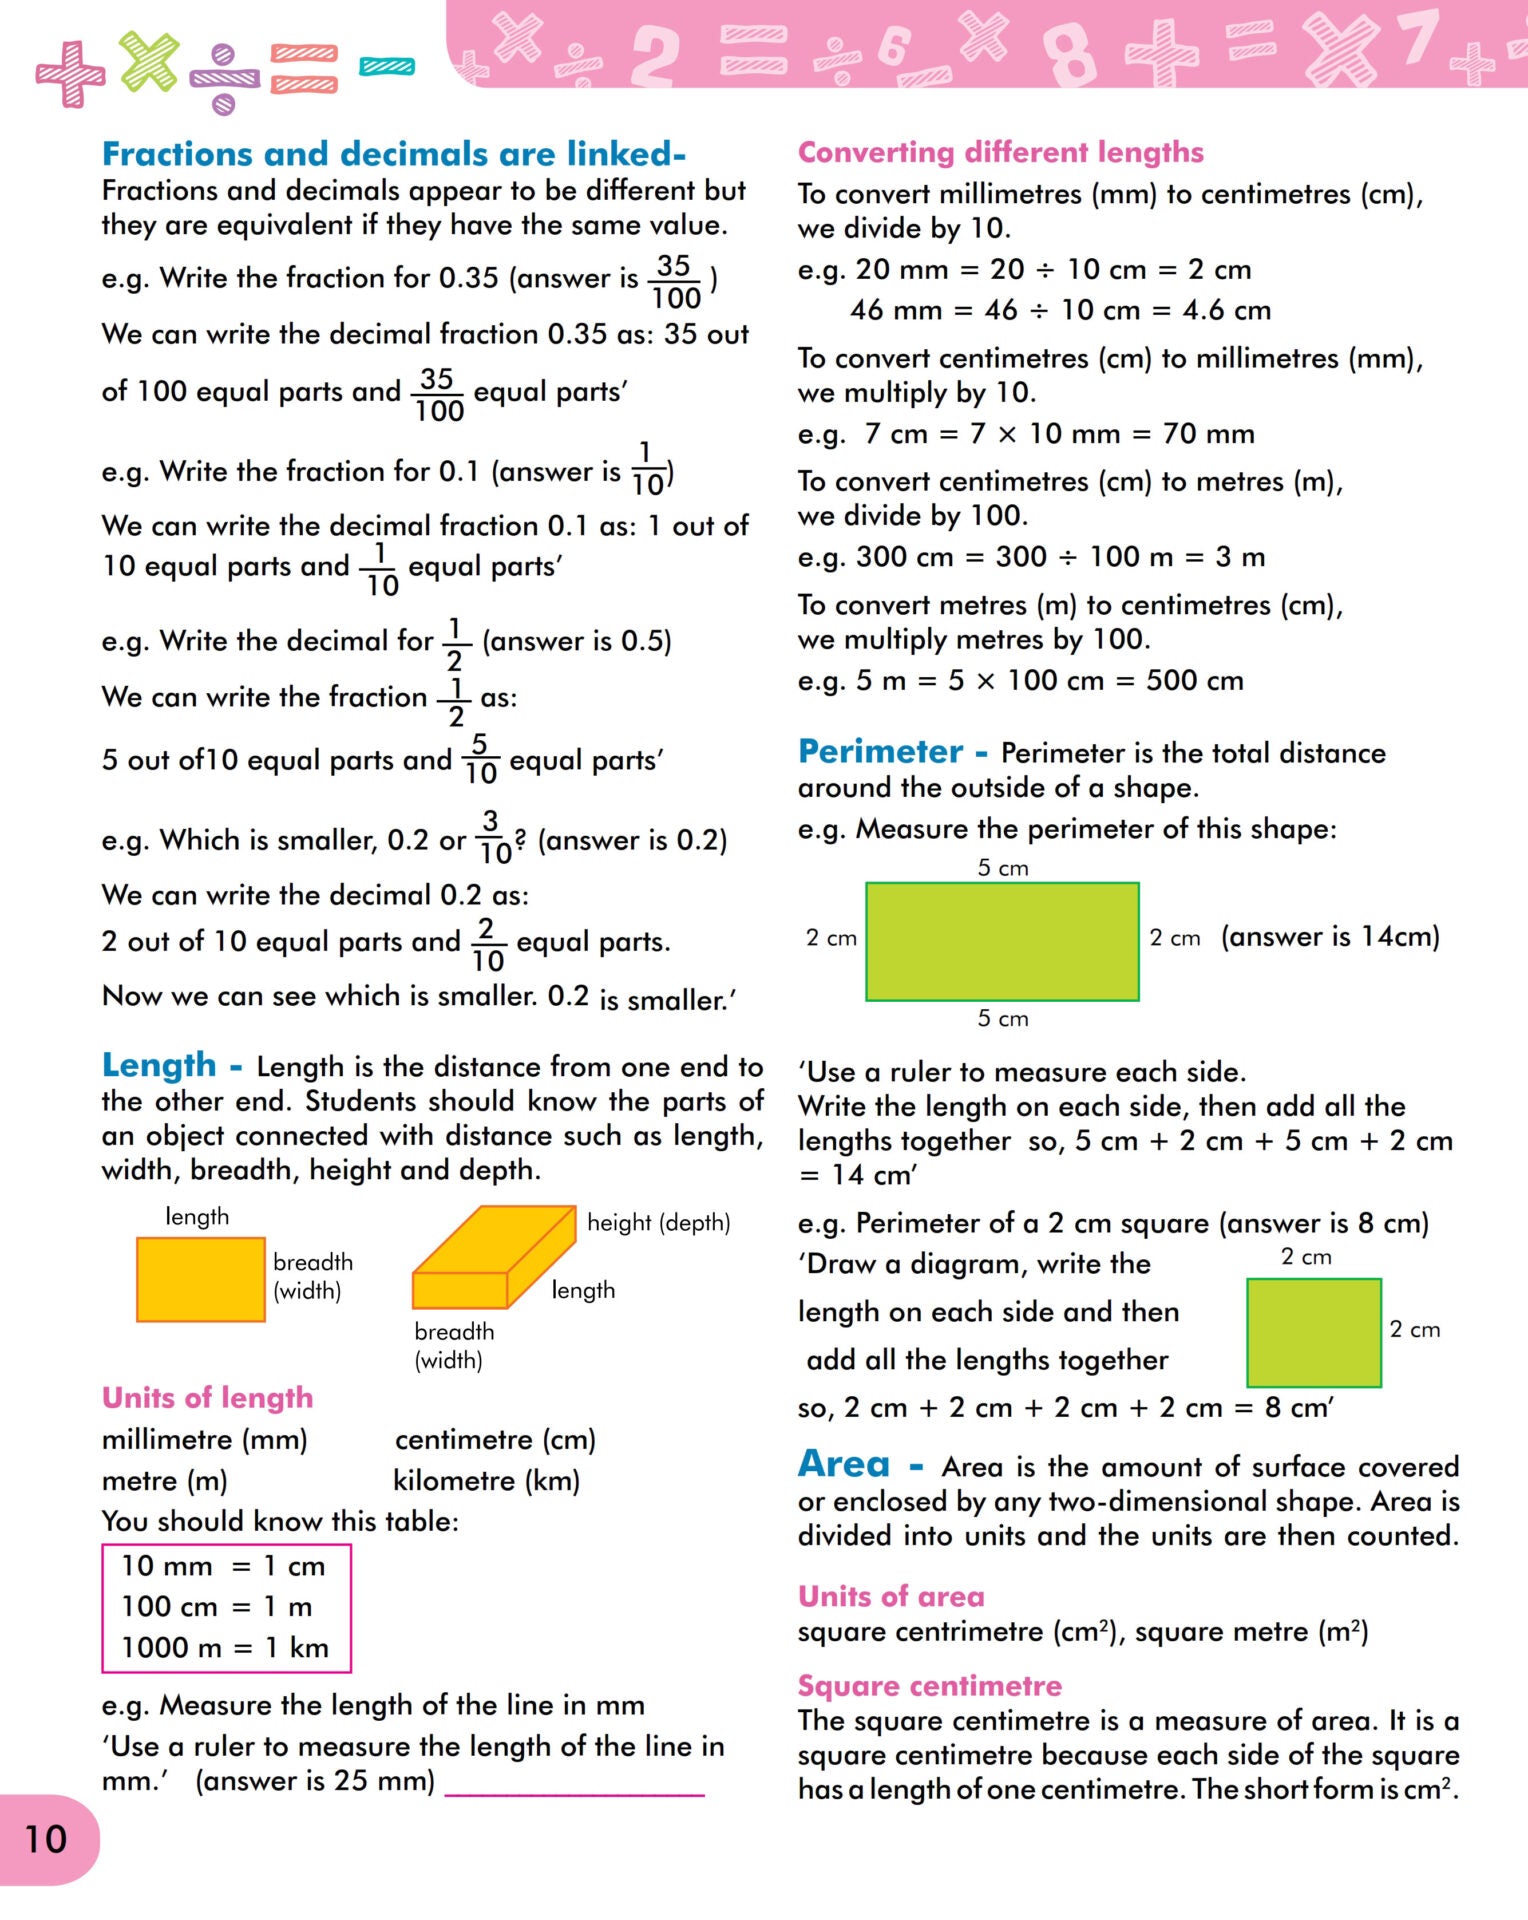 Fractions and decimals are linked-
Fractions and decimals appear to be different but
they are equivalent if they have the same value.
e.g. Write the fraction for 0.35 (answer is 35/100 )
We can write the decimal fraction 0.35 as: 35 out
of 100 equal parts and 35/100 equal parts’
e.g. Write the fraction for 0.1 (answer is 1/10)
We can write the decimal fraction 0.1 as: 1 out of
10 equal parts and 1/10 equal parts’
e.g. Write the decimal for 1/2 (answer is 0.5)
We can write the fraction 1/2 as:
5 out of10 equal parts and 5/10 equal parts’
e.g. Which is smaller, 0.2 or 3/10? (answer is 0.2)
We can write the decimal 0.2 as:
2 out of 10 equal parts and 2/10 equal parts.
Now we can see which is smaller. 0.2 is smaller.’
Length - Length is the distance from one end to
the other end. Students should know the parts of
an object connected with distance such as length,
width, breadth, height and depth.
length
breadth
(width)
height (depth)
length
breadth
(width)
Units of length
millimetre (mm) centimetre (cm)
metre (m) kilometre (km)
You should know this table:
10 mm = 1 cm
100 cm = 1 m
1000 m = 1 km
e.g. Measure the length of the line in mm
‘Use a ruler to measure the length of the line in
mm.’ (answer is 25 mm)
10
+ × ÷ = -
+ × ÷ 2 = ÷ 6 - × 8 + = × 7 + ÷
Converting different lengths
To convert millimetres (mm) to centimetres (cm),
we divide by 10.
e.g. 20 mm = 20 ÷ 10 cm = 2 cm
46 mm = 46 ÷ 10 cm = 4.6 cm
To convert centimetres (cm) to millimetres (mm),
we multiply by 10.
e.g. 7 cm = 7 × 10 mm = 70 mm
To convert centimetres (cm) to metres (m),
we divide by 100.
e.g. 300 cm = 300 ÷ 100 m = 3 m
To convert metres (m) to centimetres (cm),
we multiply metres by 100.
e.g. 5 m = 5 × 100 cm = 500 cm
Perimeter - Perimeter is the total distance
around the outside of a shape.
e.g. Measure the perimeter of this shape:
5 cm
2 cm 2 cm (answer is 14cm)
5 cm
‘Use a ruler to measure each side.
Write the length on each side, then add all the
lengths together so, 5 cm + 2 cm + 5 cm + 2 cm
= 14 cm’
e.g. Perimeter of a 2 cm square (answer is 8 cm)
‘Draw a diagram, write the
length on each side and then
add all the lengths together
so, 2 cm + 2 cm + 2 cm + 2 cm = 8 cm’
2 cm
2 cm
Area - Area is the amount of surface covered
or enclosed by any two-dimensional shape. Area is
divided into units and the units are then counted.
Units of area
square centrimetre (cm²), square metre (m²)
Square centimetre
The square centimetre is a measure of area. It is a
square centimetre because each side of the square
has a length of one centimetre. The short form is cm².